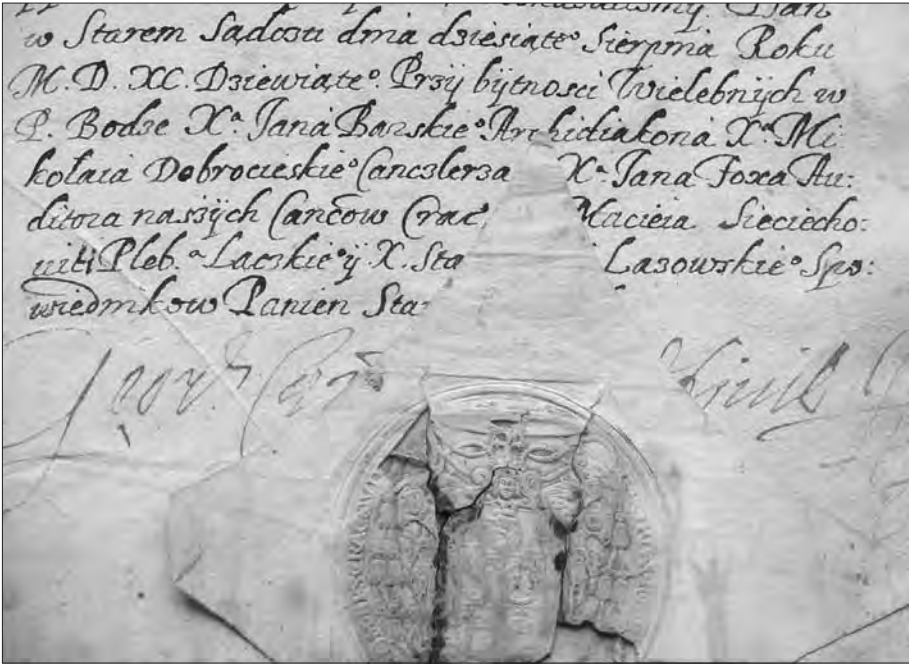 w Starem Sądczu dnia dziesiąteº Sierpnia Roku
M. D. XC. Dziewiąteº. Przÿ bÿtnosci Wielebnÿch w
P. Bodze Xª Jana Barskieº Archidiakona Xª Mi
kołaia Dobrocieskieº Canczlerza Xª Jana Foxa Au:
ditora naszÿch Cancow Crac Macieia Sieciecho:
uiti Pleb.ª Laczkieº ÿ X. Sta Lazowskieº Spo:
wiednikow Panien Sta: